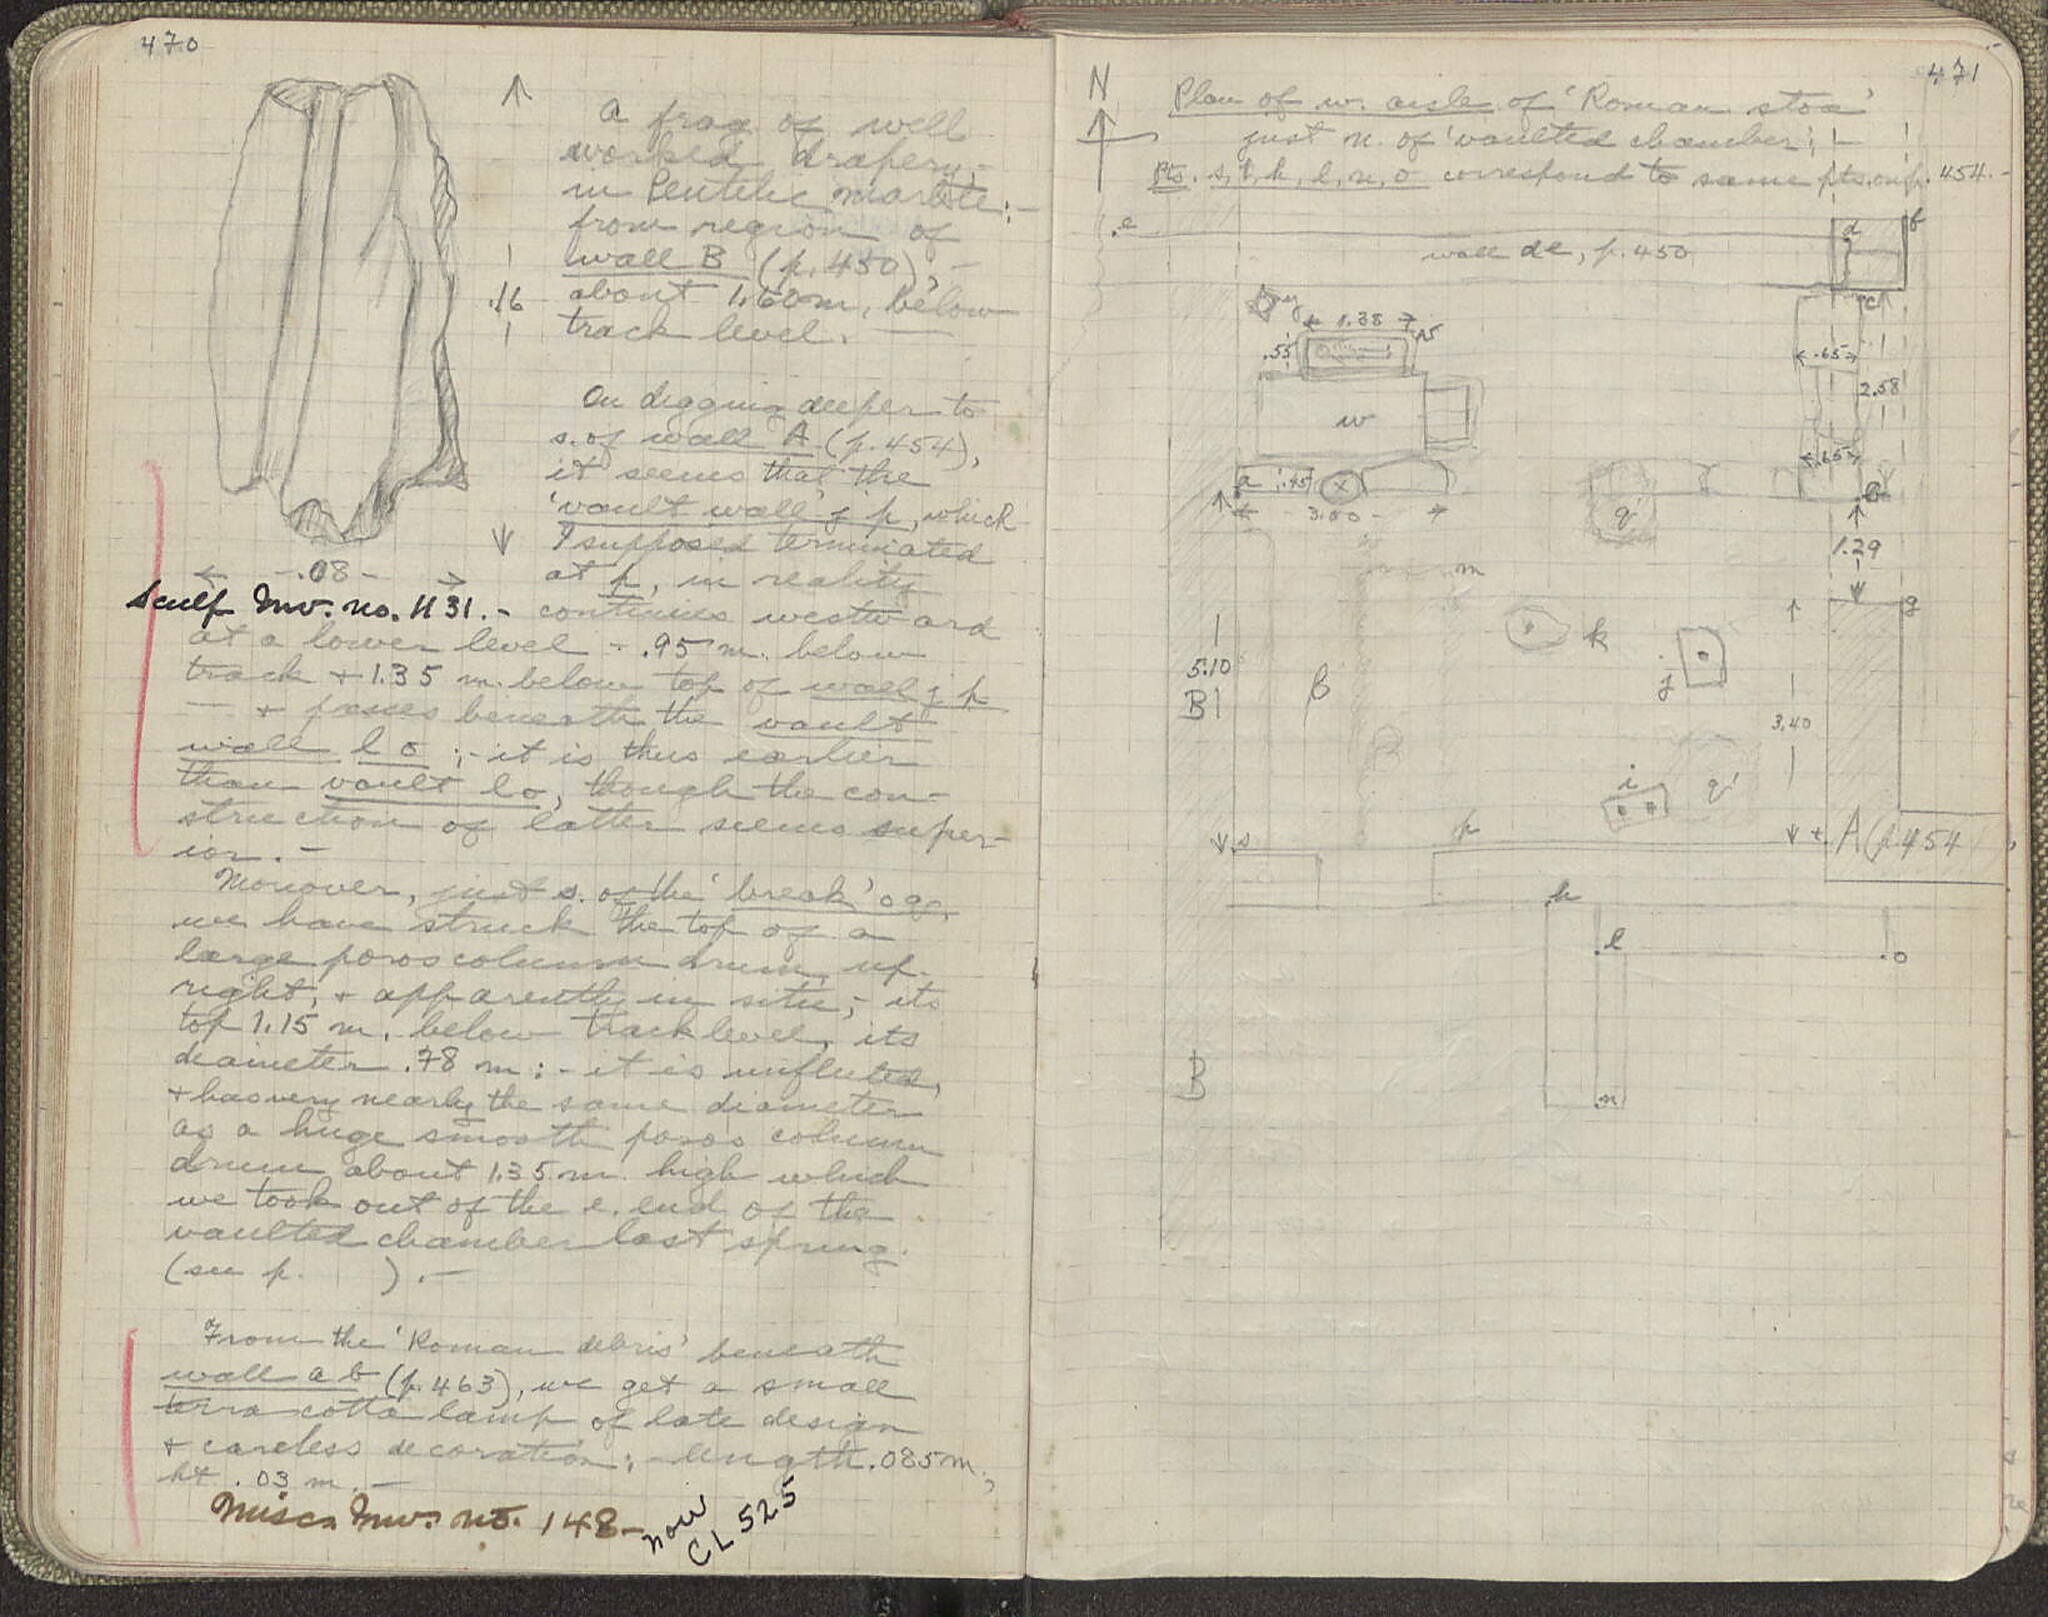 470
A frag. of well
worked drapery,-
in Pentelic marble:-
from region of
wall B (p. 450),-
about 1.60 m. below
track level. —
.16
.08
Sculp. Inv. no. 1131.-
On digging deeper to
s. of wall A (p. 454),
it seems that the
'vault wall' j p, which
I supposed terminated
at p, in reality
continues westward
at a lower level - .95 m. below
track + 1.35 m. below top of wall j p
— + passes beneath the vault
wall l o ;- it is thus earlier
than vault l o, though the con-
struction of latter seems super-
ior. -
Moreover, just s. of the 'break' o g,
we have struck the top of a
large poros column drum, up-
right, + apparently in situ,- its
top 1.15 m. below track level, its
diameter .78 m:- it is unfluted,
+ has very nearly the same diameter
as a huge smooth poros column
drum about 1.35 m. high which
we took out of the e. end of the
vaulted chamber last spring.
(see p. ). —
From the 'Roman debris' beneath
wall a b (p. 463), we get a small
terra cotta lamp of late design
+ careless decoration;- length .085 m.,
ht .03 m. —
Misc. Inv. no. 148-
now
CL 525
471
N
Plan of w. aisle of 'Roman stoa'
just n. of 'vaulted chamber';-
Pts. s, t, h, l, n, o correspond to same pts. on p. 454.-
e
d
f
wall de, p. 450
c
y
1.38
v
.55
.65
2.58
w
.65
a
.45
x
b
3.00
q
1.29
m
g
k
5.10
B
β
j
3.40
i
q'
s
p
t
A (p. 454)
h
l
o
B
n